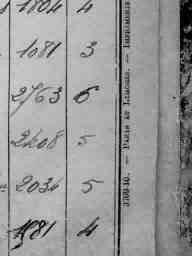 1804 4
1081 3
2763 6
2208 5
2034 5
4
3309-10. — PARIS ET LIMOGES. — IMPRIMERIE